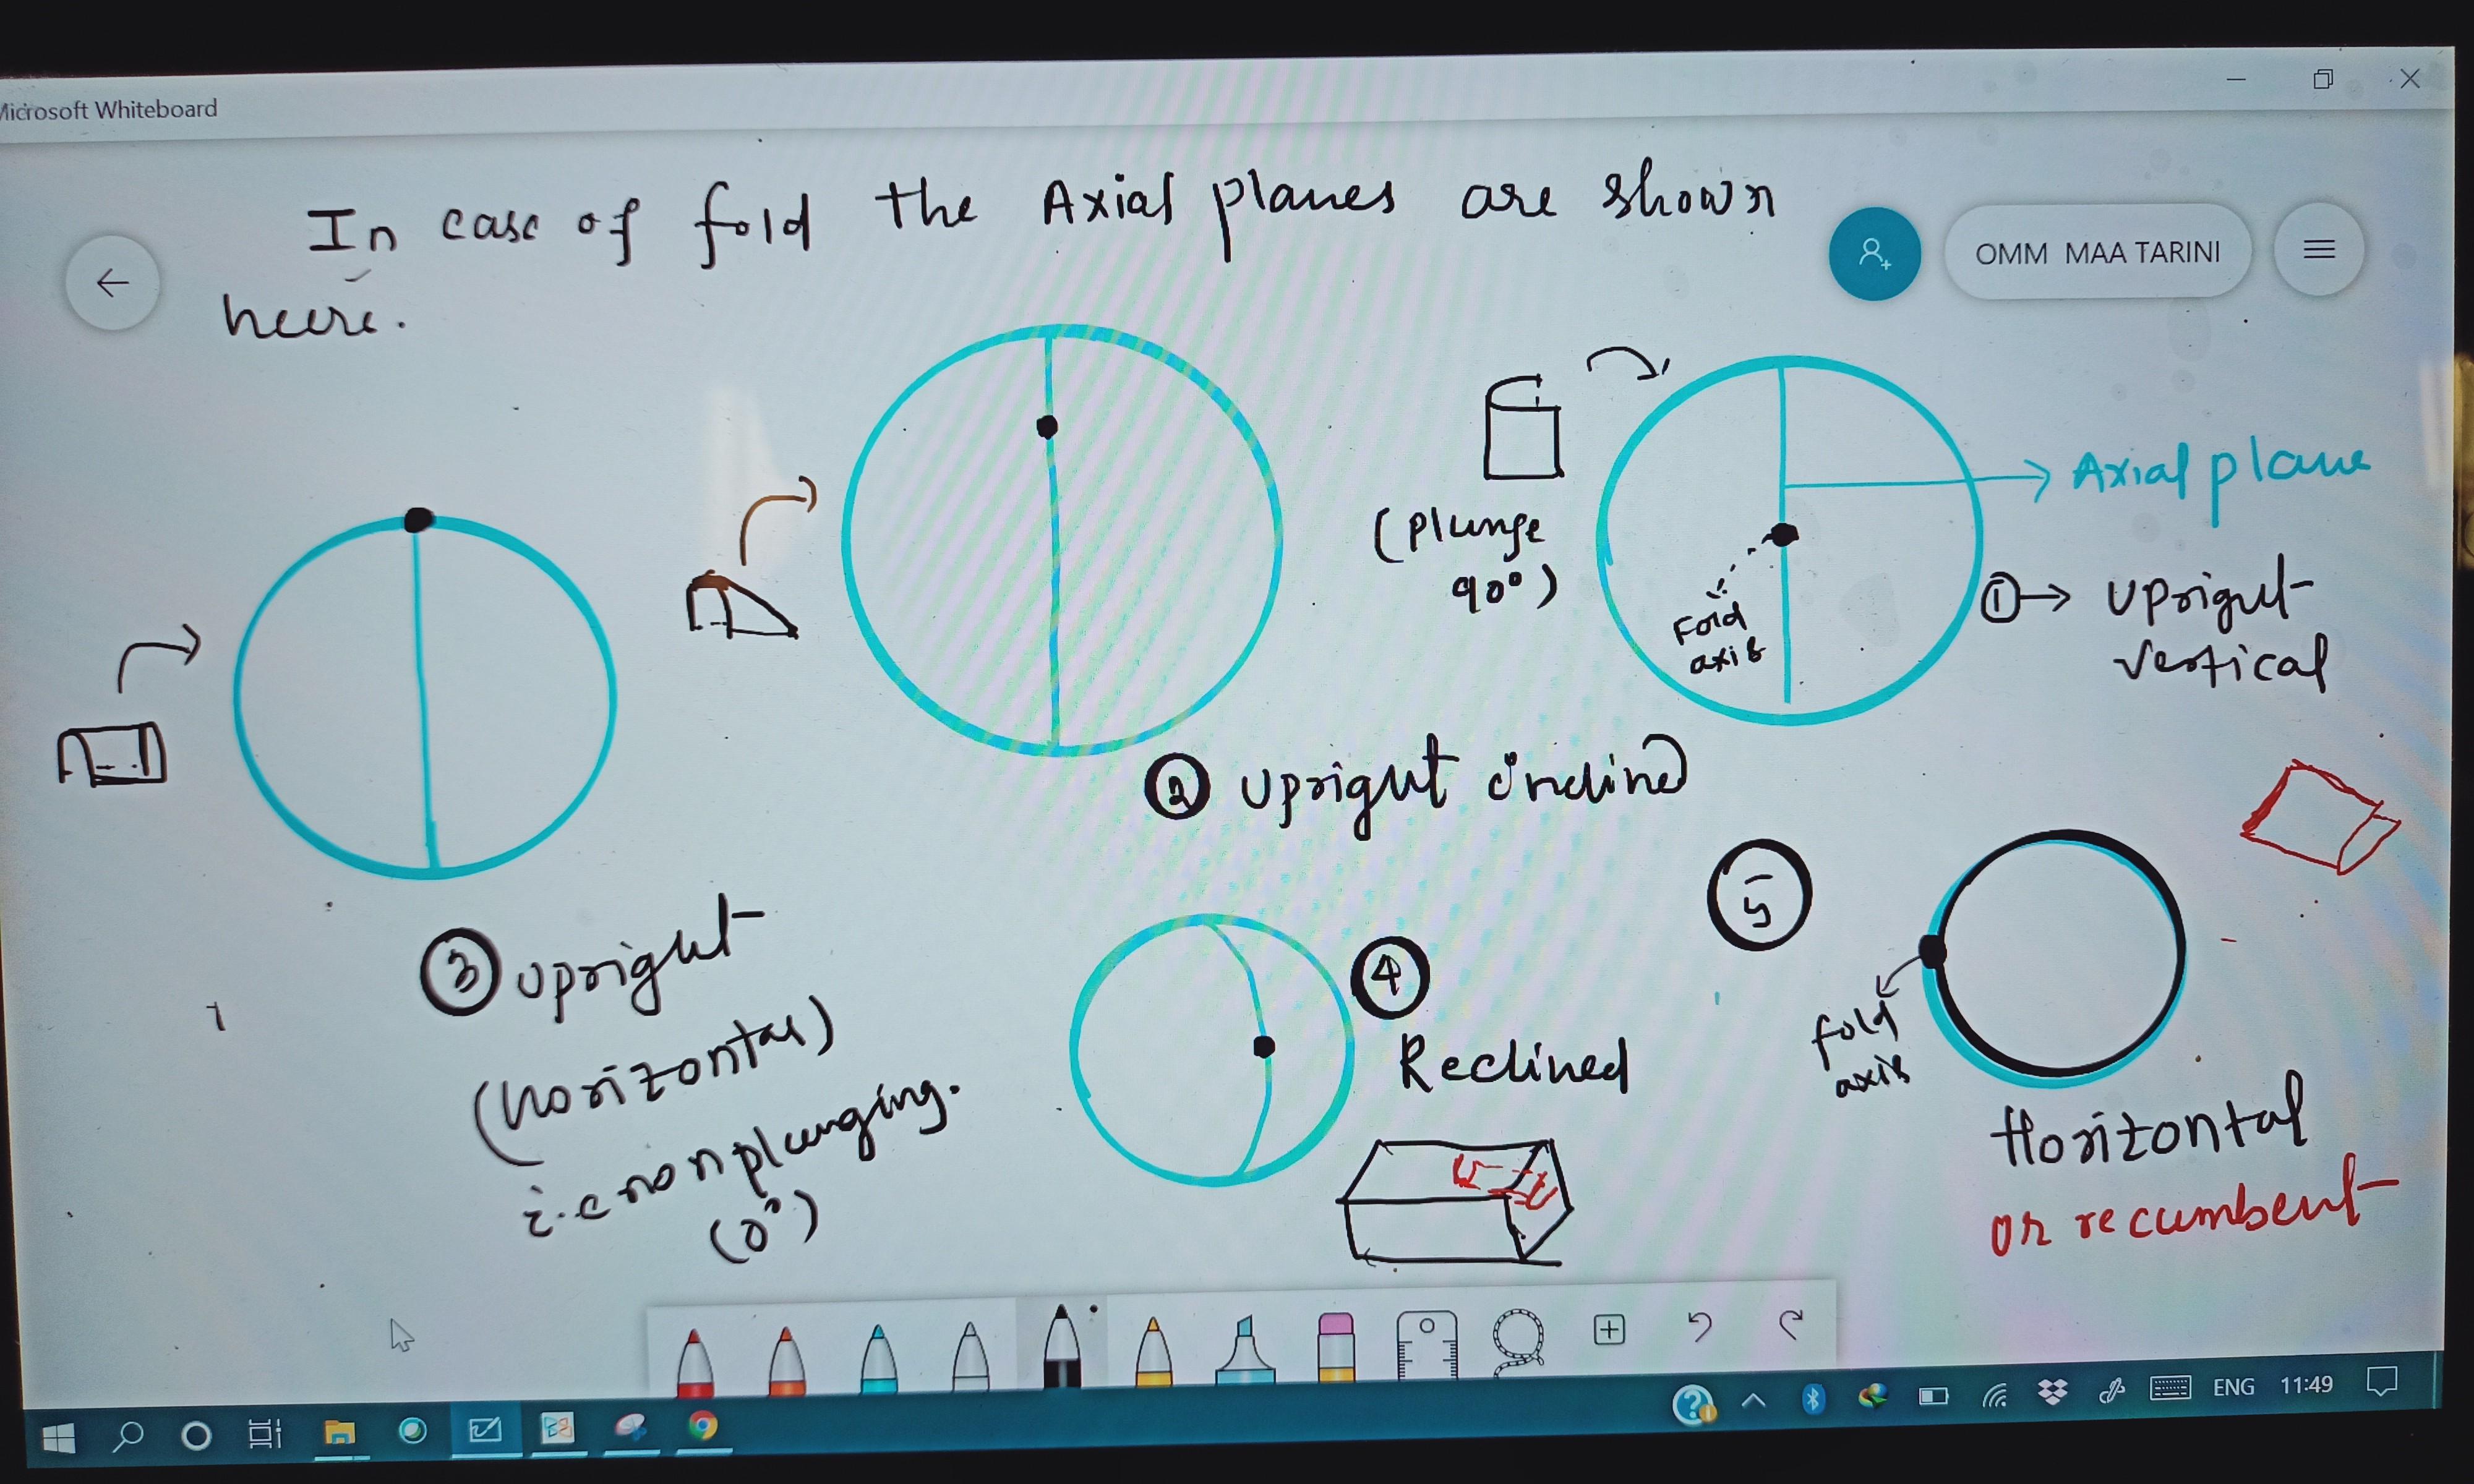 Microsoft Whiteboard
In case of fold the Axial planes are shown
heere.
OMM MAA TARINI
(plunge
90°)
Axial plane
Fold
axis
① → Upright
vertical
② Upright inclined
③ Upright
(horizontal)
i.e nonplunging.
(0°)
④
Reclined
5
fold
axis
Horizontal
or recumbent
ENG 11:49